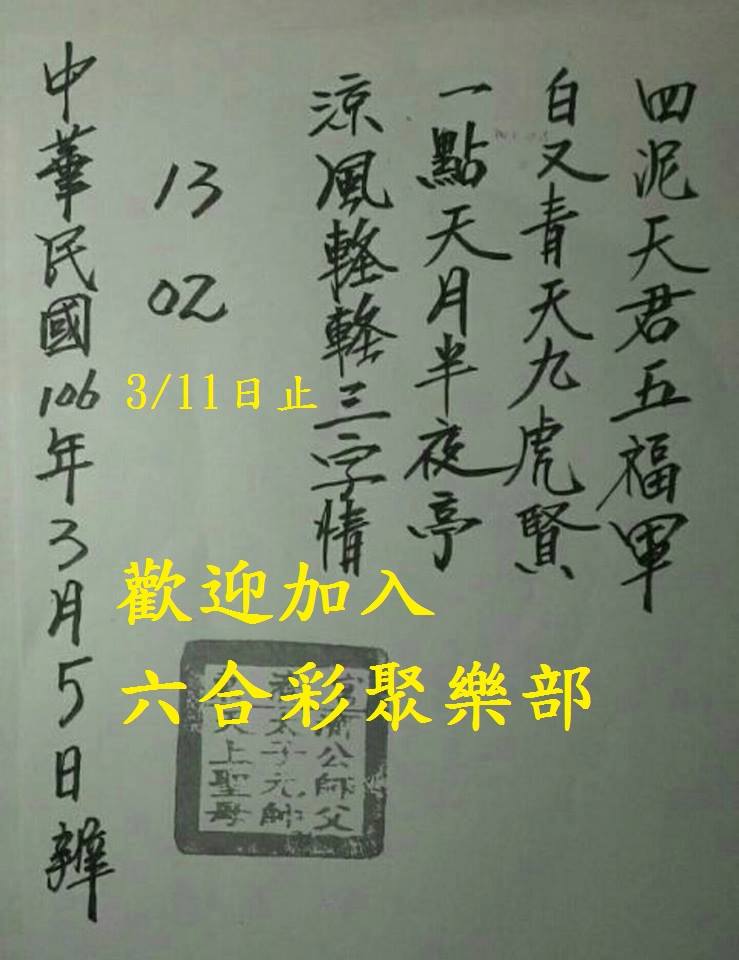 四泥天君五福軍
白又青天九虎賢
一點天月半夜亭
涼風輕輕三字情
13
02
3/11日止
中華民國106年3月5日辦
歡迎加入
六合彩聚樂部
公師父
太子元帥
天上聖母